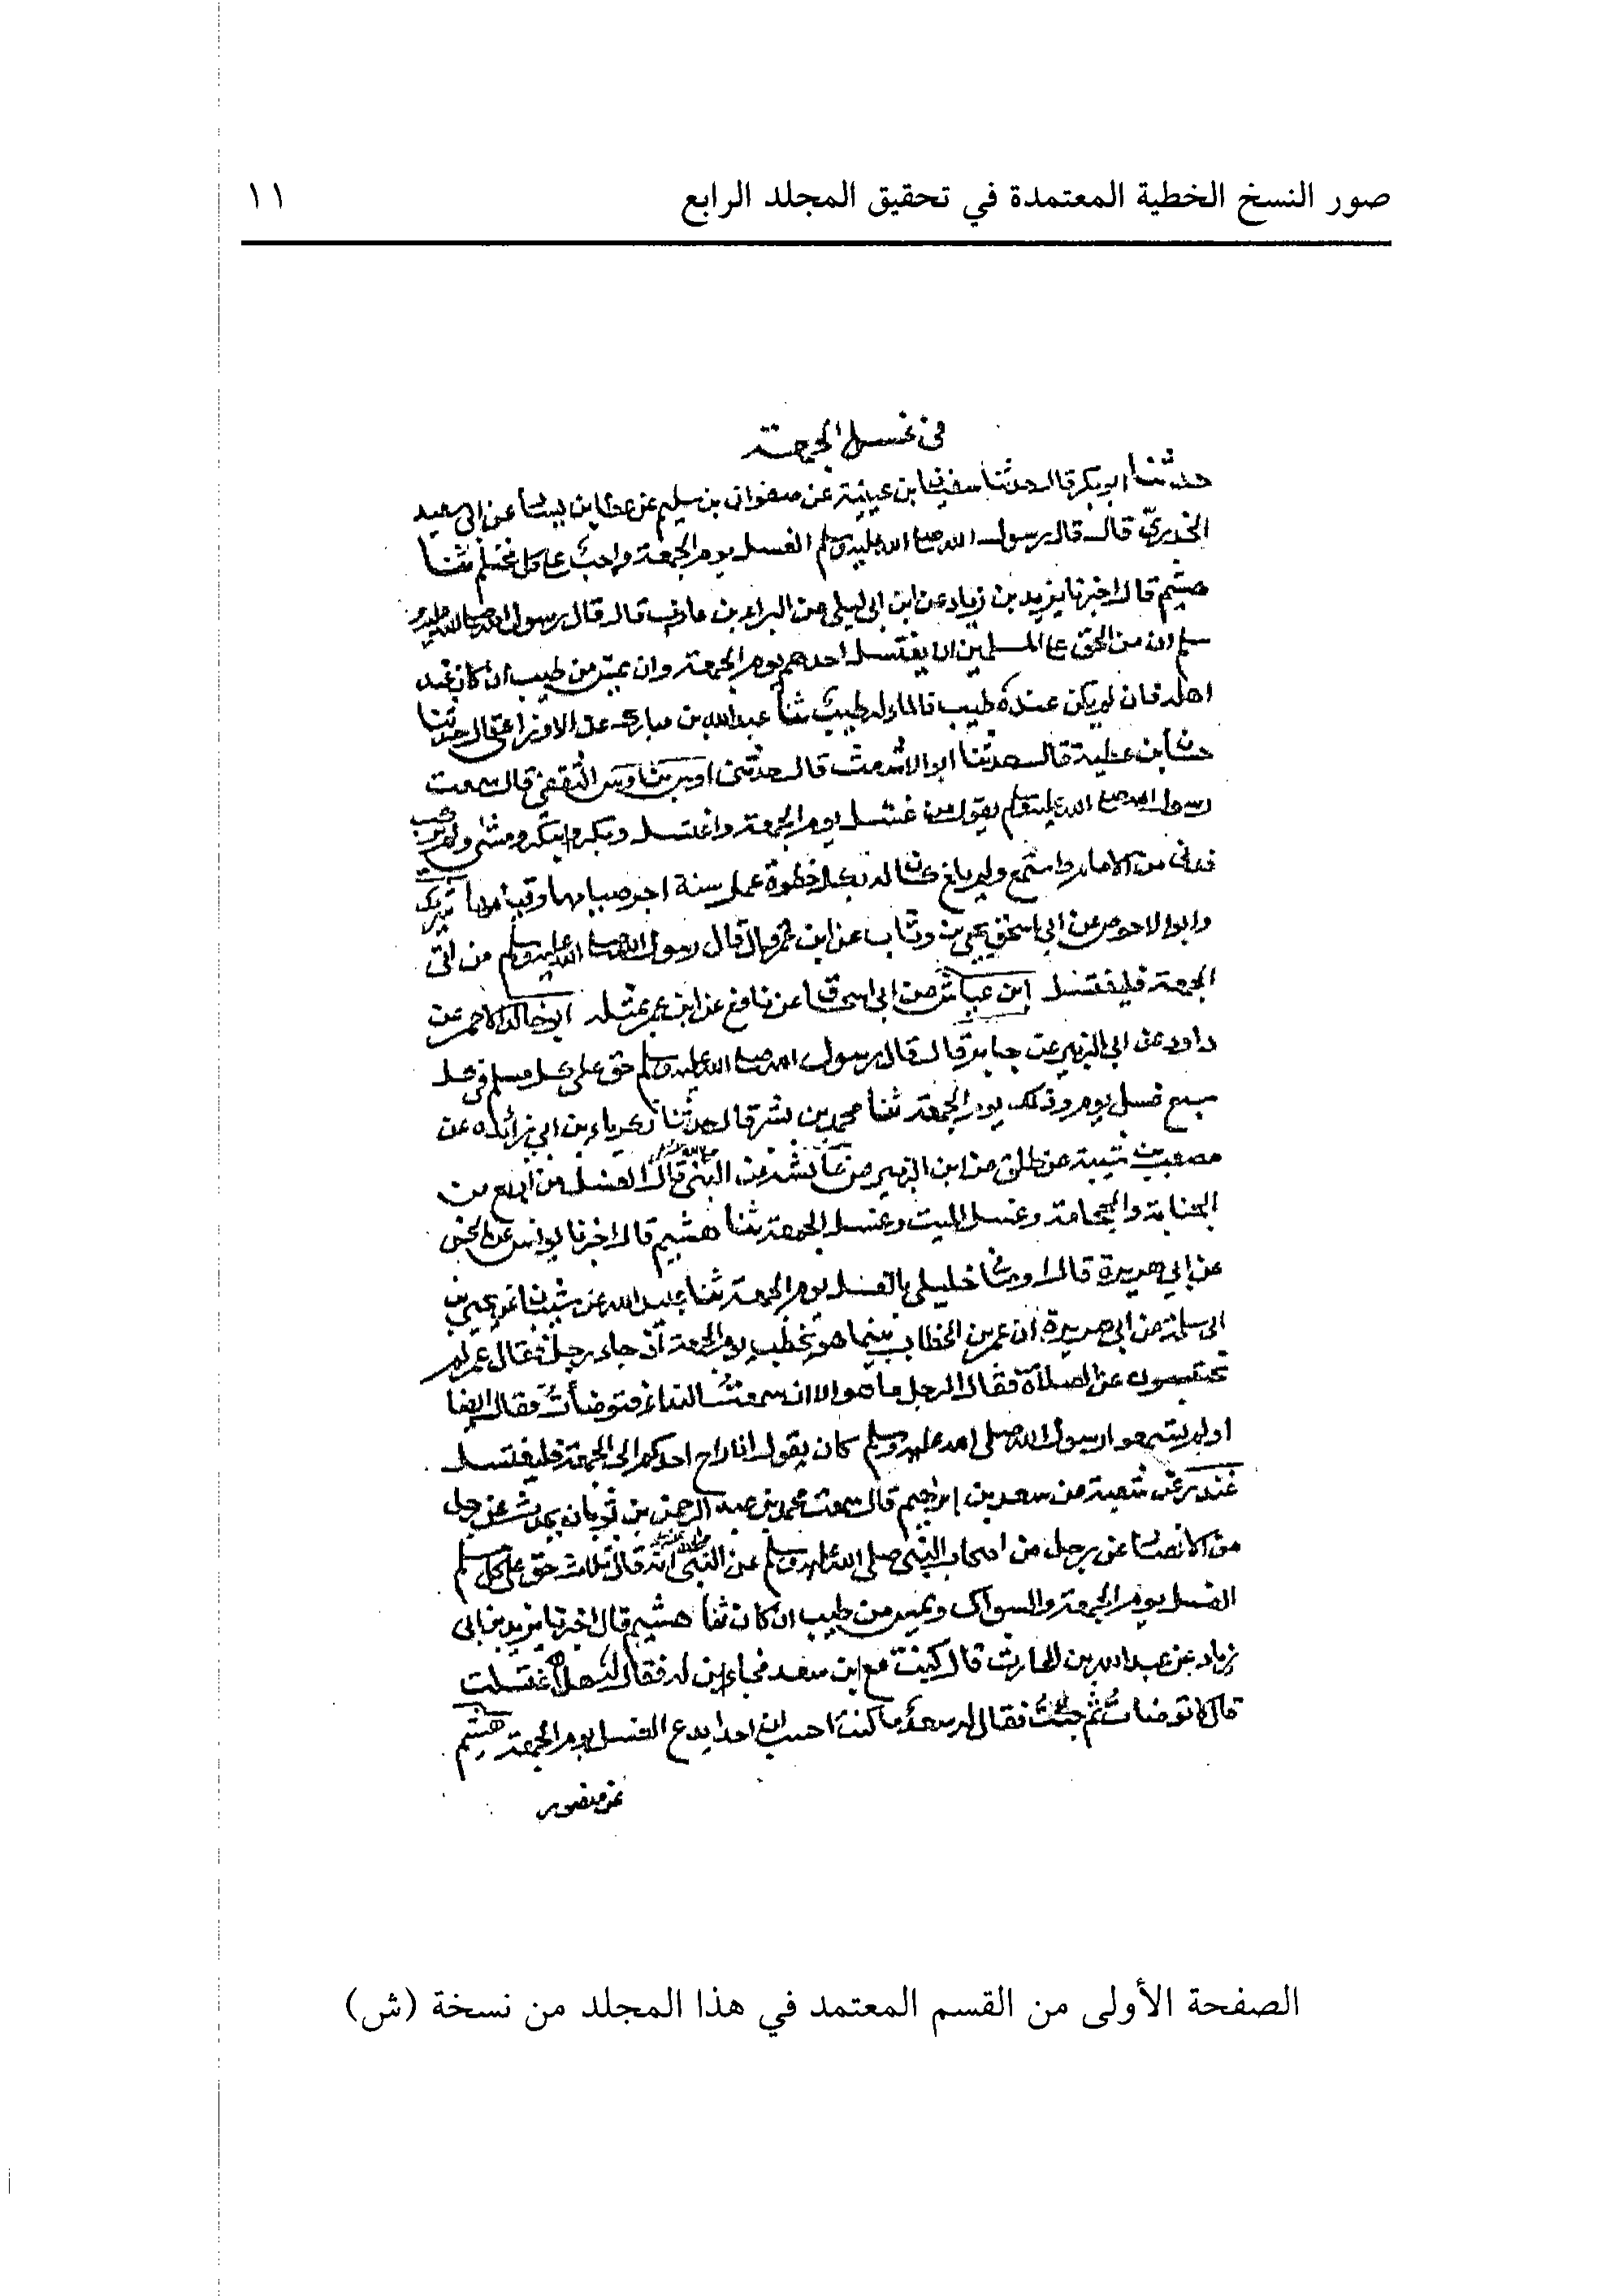 صور النسخ الخطية المعتمدة في تحقيق المجلد الرابع ١١
في غسل الجمعة
حدثنا ابو بكر قال حدثنا سفيان بن عيينة عن صفوان بن سليم عن عطا بن يسار عن ابي سعيد
الخدري قال قال رسول الله صلى الله عليه وسلم الغسل يوم الجمعة واجب على كل محتلم ثنا
هشيم قال اخبرنا يزيد بن زياد عن ابن ابي ليلى عن البراء بن عازب قال قال رسول الله صلى الله عليه و
سلم ان من الحق على المسلمين ان يغتسل احدهم يوم الجمعة وان يمس من طيب ان كان عند
اهله فان لم يكن عنده طيب فالماء له طيب ثنا عبدالله بن مبارك عن الاوزاعي قال حدثنا
حسان بن عطية قال حدثنا ابو الاشعث قال حدثني اوس بن اوس الثقفي قال سمعت
رسول الله صلى الله عليه وسلم يقول من غسل يوم الجمعة واغتسل وبكر وابتكر ومشى ولم يركب
فدنى من الامام واستمع ولم يلغ كان له بكل خطوة عمل سنة اجر صيامها وقيامها شريك
وابو الاحوص عن ابي اسحق يحيى بن وثاب عن ابن عمر قال قال رسول الله صلى الله عليه وسلم من اتى
الجمعة فليغتسل ابن عياش عن ابي اسحق عن نافع عن ابن عمر بمثله ابو خالد الاحمر عن
داود عن ابي الزبير عن جابر قال قال رسول الله صلى الله عليه وسلم حق على كل مسلم في كل
سبع غسل يوم وذلك يوم الجمعة ثنا محمد بن بشر قال حدثنا زكرياء بن ابي زائدة عن
مصعب بن شيبة عن طلق عن ابن الزبير عن عائشة عن النبي قال الغسل من اربع من
الجنابة والحجامة وغسل الميت وغسل الجمعة ثنا هشيم قال اخبرنا يونس عن الحسن
عن ابي هريرة قال اوصاني خليلي بالغسل يوم الجمعة ثنا عبيد الله عن شيبان عن يحيى عن
ابي سلمة عن ابي هريرة ان عمر بن الخطاب بينما هو يخطب يوم الجمعة اذ جاء رجل فقال عمر لم
تحتبسون عن الصلاة فقال الرجل ما هو الا ان سمعت النداء فتوضأت فقال ايضا
اولم تسمعوا رسول الله صلى الله عليه وسلم كان يقول اذا راح احدكم الى الجمعة فليغتسل
غندر عن شعبة عن سعد بن إبراهيم قال سمعت محمد بن عبد الرحمن بن ثوبان يحدث عن رجل
من الانصار عن رجل من اصحاب النبي صلى الله عليه وسلم عن النبي انه قال ثلاث حق على كل مسلم
الغسل يوم الجمعة والسواك ويمس من طيب ان كان ثنا هشيم قال اخبرنا يزيد بن ابي
زياد عن عبد الله بن الحارث قال كنت مع ابن سعد فجاء ابن له فقال له هل اغتسلت
قال لا توضات ثم جئت فقال له سعد ما كنت احسب ان احدا يدع الغسل يوم الجمعة هشيم
عن منصور
الصفحة الأولى من القسم المعتمد في هذا المجلد من نسخة (ش)